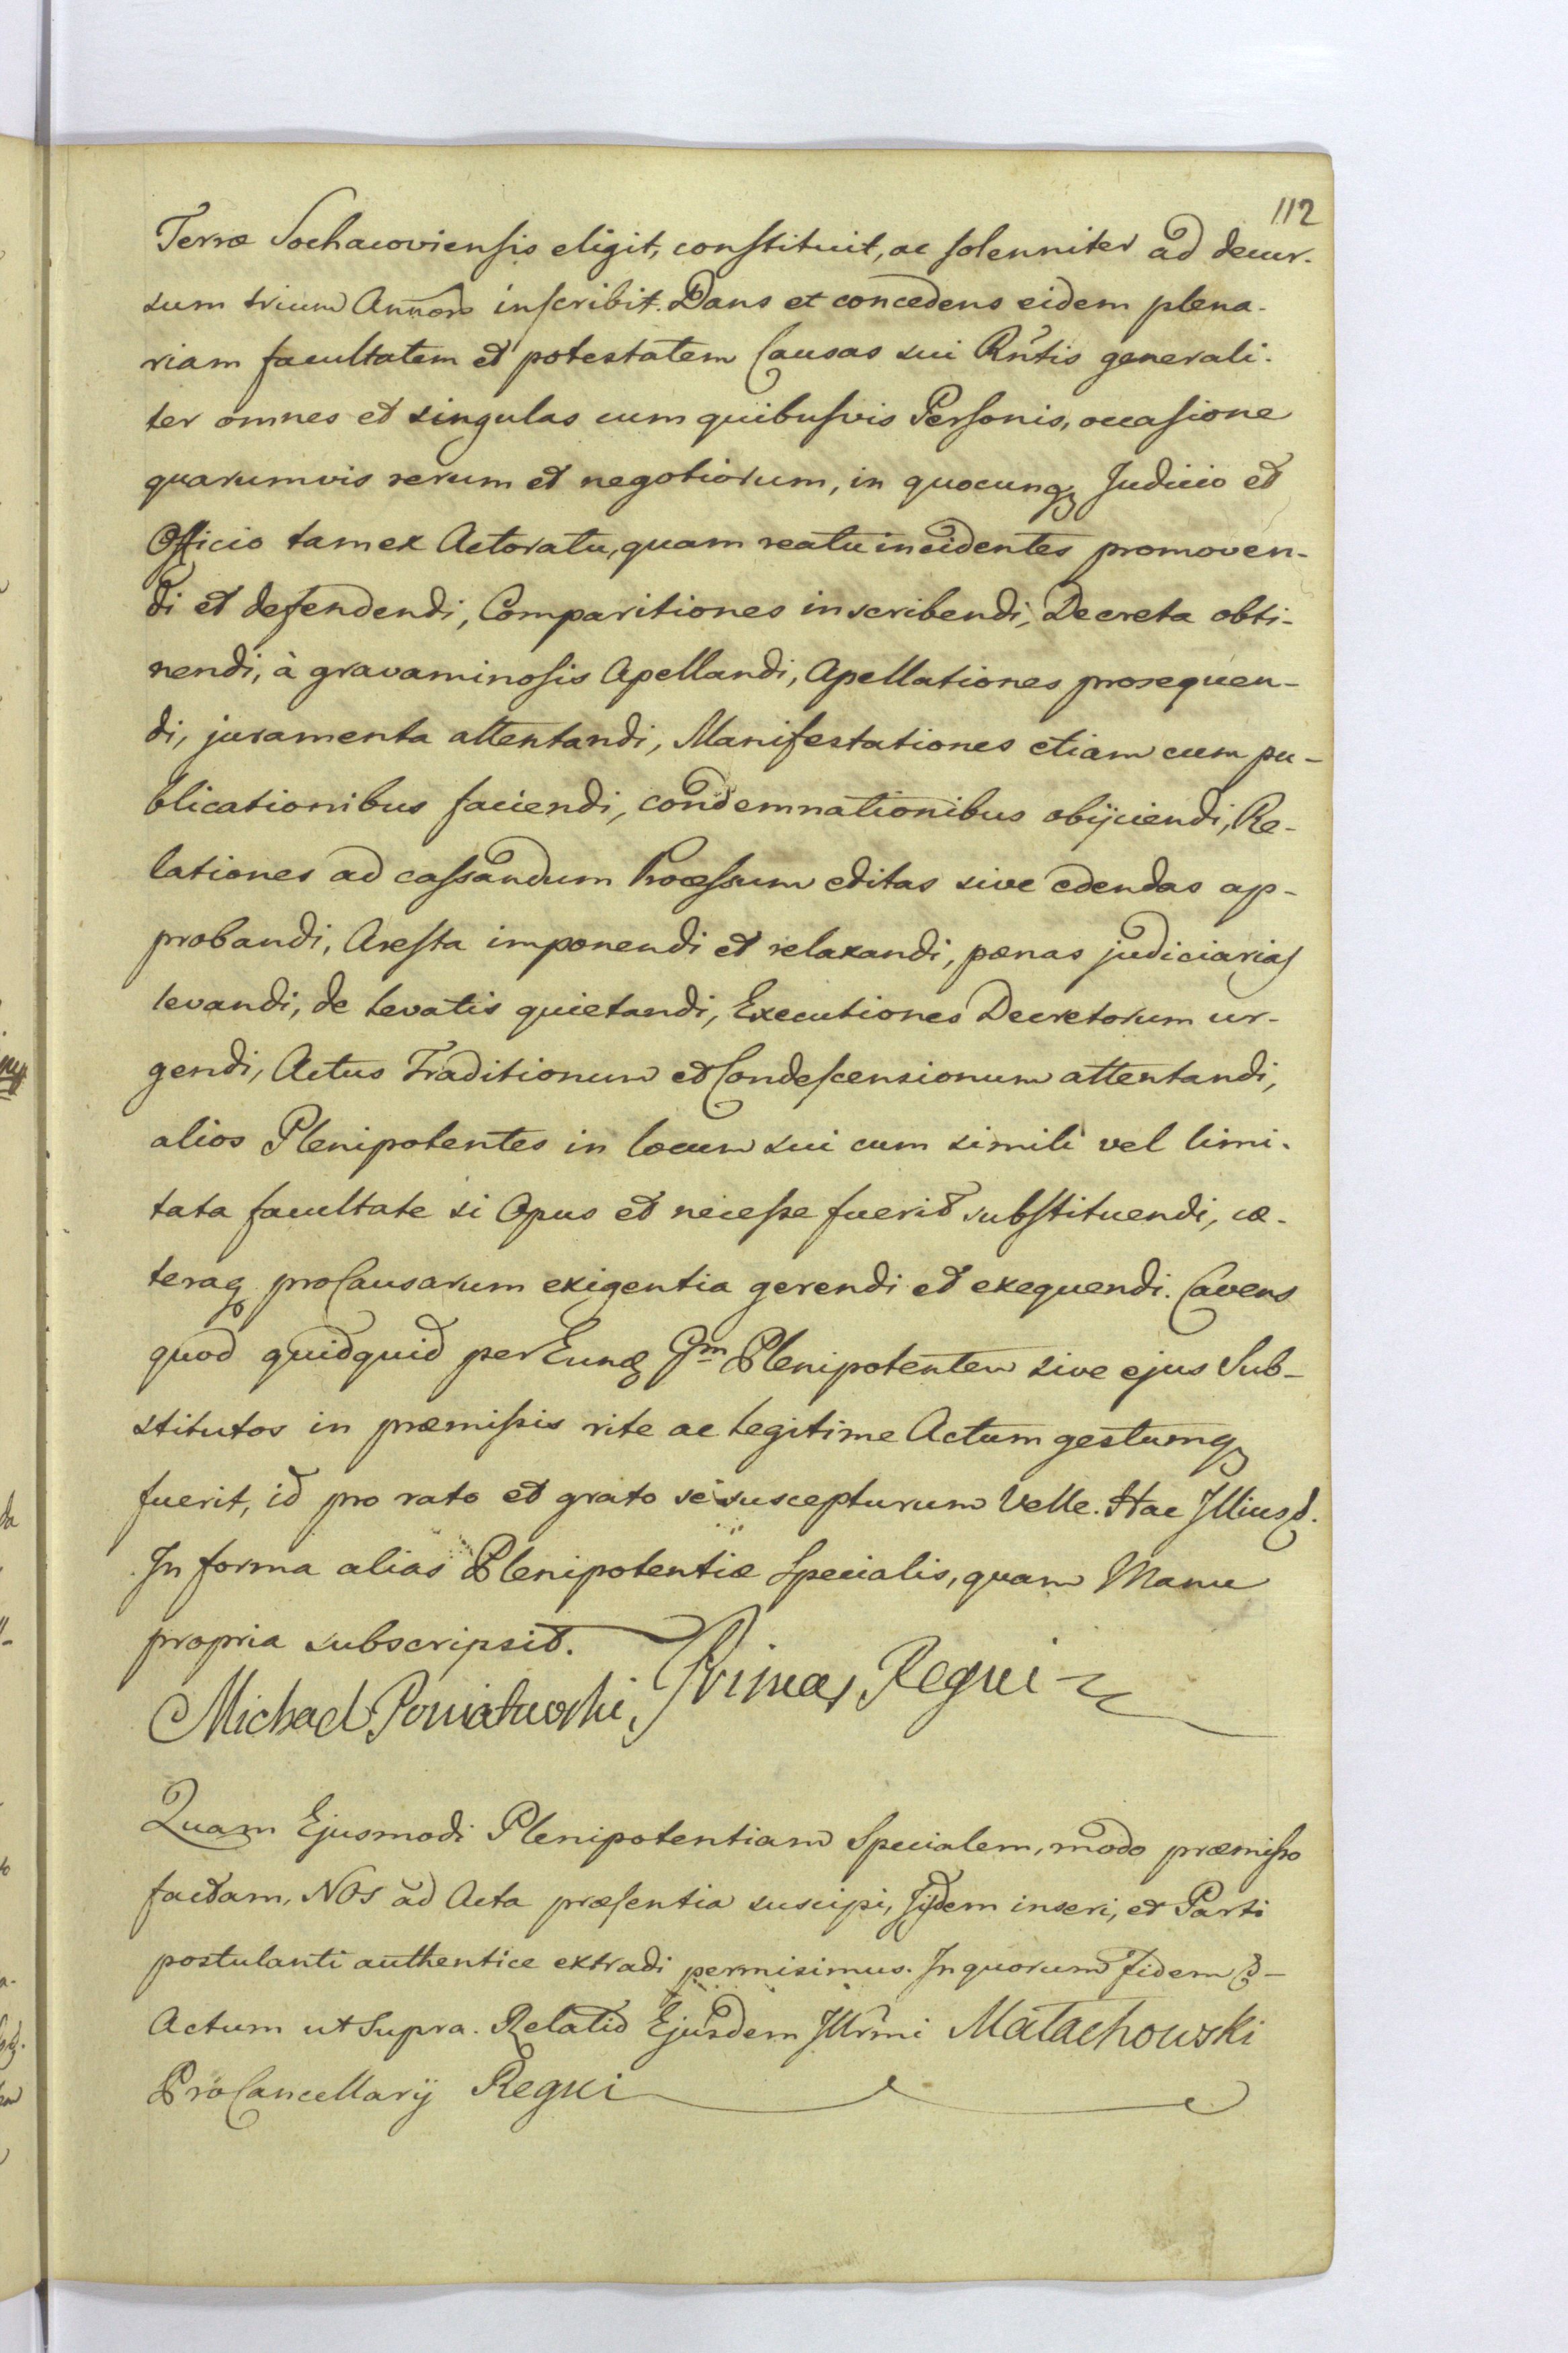 112
Terræ Sochacoviensis eligit, constituit, ac solenniter ad decur-
sum trium Annor inscribit. Dans et concedens eidem plena-
riam facultatem et potestatem Causas sui Rñtis generali-
ter omnes et singulas cum quibusvis Personis, occasione
quarumvis rerum et negotiorum, in quocunq Judicio et
Officio tam ex Actoratu, quam reatu incidentes promoven-
di et defendendi, Comparitiones inscribendi, Decreta obti-
nendi, à gravaminosis Apellandi, Apellationes prosequen-
di, juramenta attentandi, Manifestationes etiam cum pu-
blicationibus faciendi, condemnationibus obijciendi, Re-
lationes ad cassandum Processum editas sive edendas ap-
probandi, Aresta imponendi et relaxandi, pœnas judiciarias
levandi, de levatis quietandi, Executiones Decretorum ur-
gendi, Actus Traditionum et Condescensionum attentandi,
alios Plenipotentes in locum sui cum simili vel limi-
tata facultate si Opus et necesse fuerit substituendi, cæ-
teraq pro Causarum exigentia gerendi et exequendi. Cavens
quod quidquid per Eund Gm Plenipotentem sive ejus Sub-
stitutos in præmissis rite ac legitime Actum gestumq
fuerit, id pro rato et grato se suscepturum Velle. Hac Illius
In forma alias Plenipotentiæ Specialis, quam Manu
propria subscripsit.
Michael Poniatowski, Primas Regni
Quam Ejusmodi Plenipotentiam Specialem, modo præmisso
factam, NOS ad Acta præsentia suscipi, Iisdem inseri, et Parti
postulanti authentice extradi permisimus. In quorum Fidem
Actum ut Supra. Relatio Ejusdem Illrmi Małachowski
ProCancellarij Regni